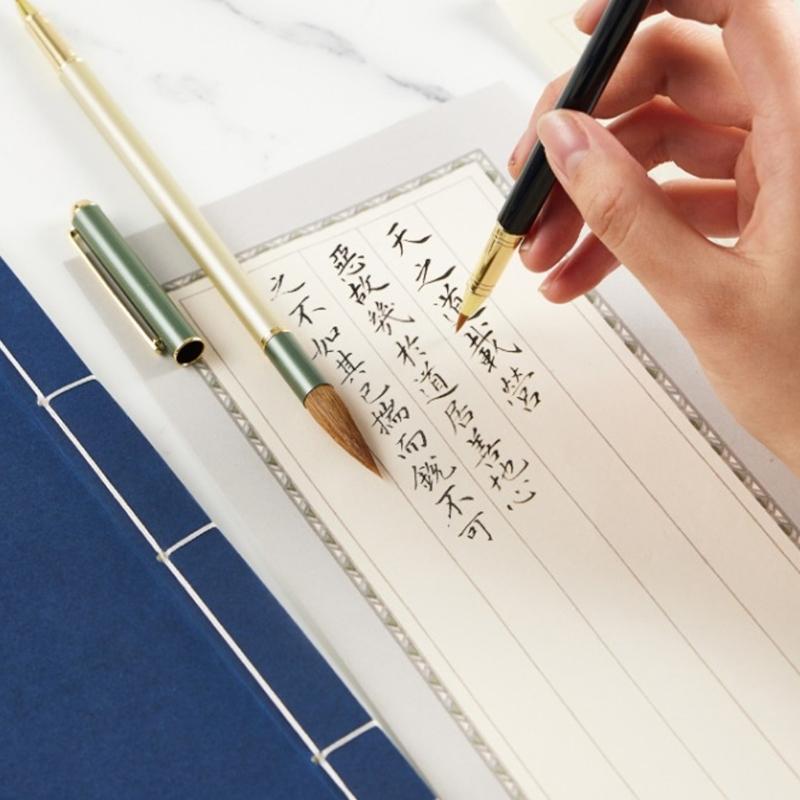 天之道載營
惡故幾於道居善地心
之不如其已揣而銳不可